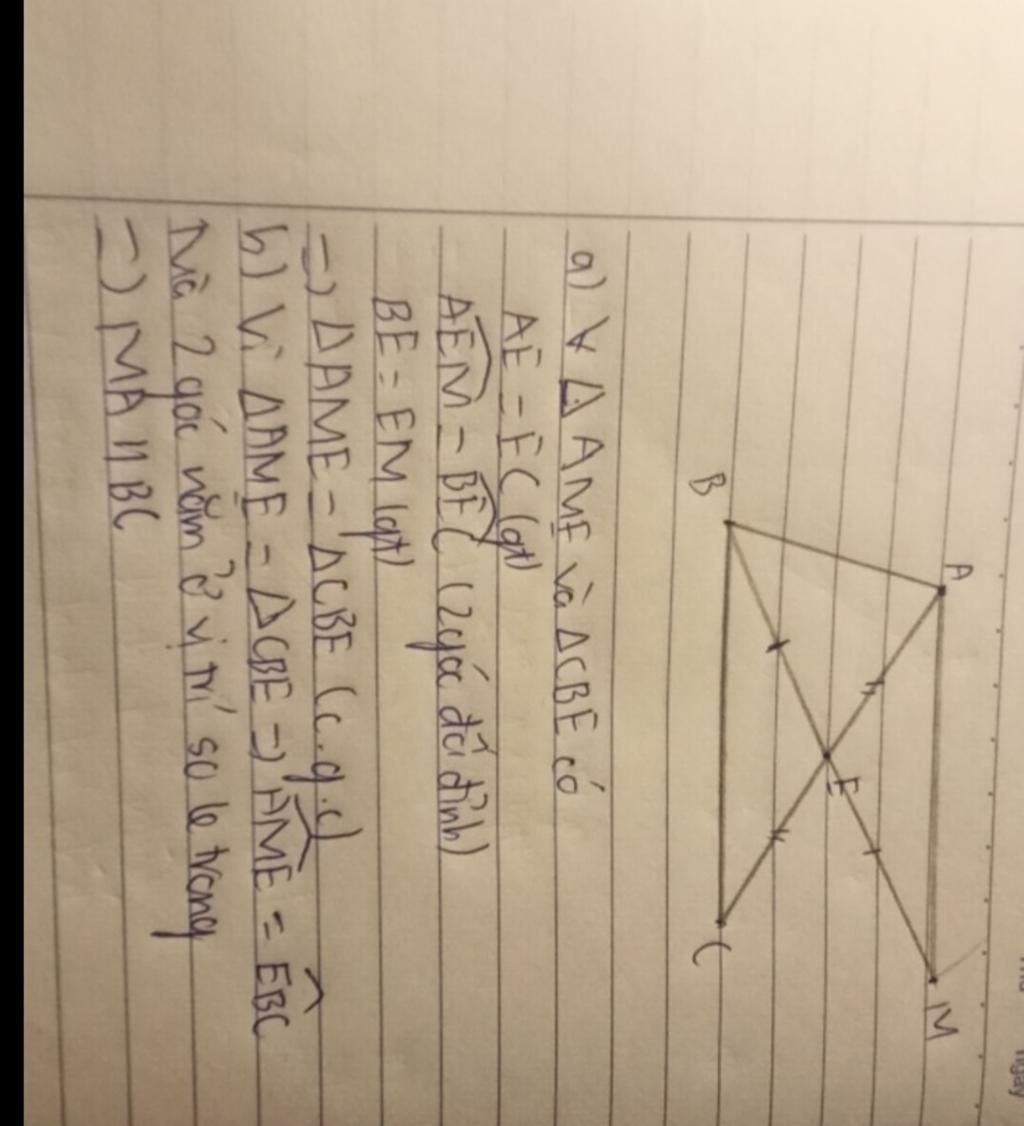 ngày
A
M
E
B
C
a) ∀ Δ AME và ΔCBE có
AE = EC (gt)
AÊM = BÊC (2 góc đối đỉnh)
BE = EM (gt)
=) ΔAME = ΔCBE (c.g.c)
b) Vì ΔAME = ΔCBE =) AM̂E = EB̂C
Mà 2 góc nằm ở vị trí so le trong
=) MA // BC